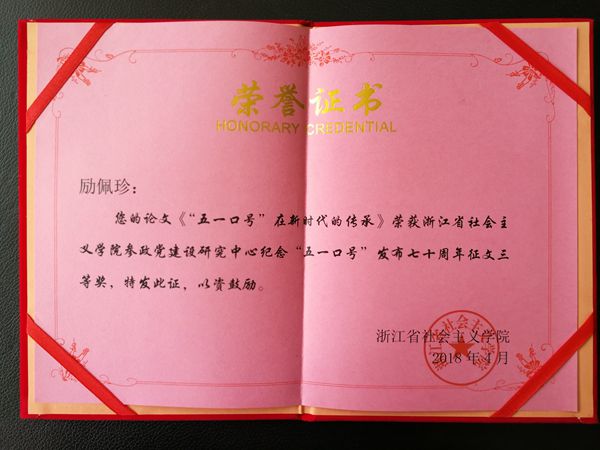 荣誉证书
HONORARY CREDENTIAL
励佩珍：
您的论文《“五一口号”在新时代的传承》荣获浙江省社会主
义学院参政党建设研究中心纪念“五一口号”发布七十周年征文三
等奖，特发此证，以资鼓励。
浙江省社会主义学院
2018年4月
浙江省社会主义学院